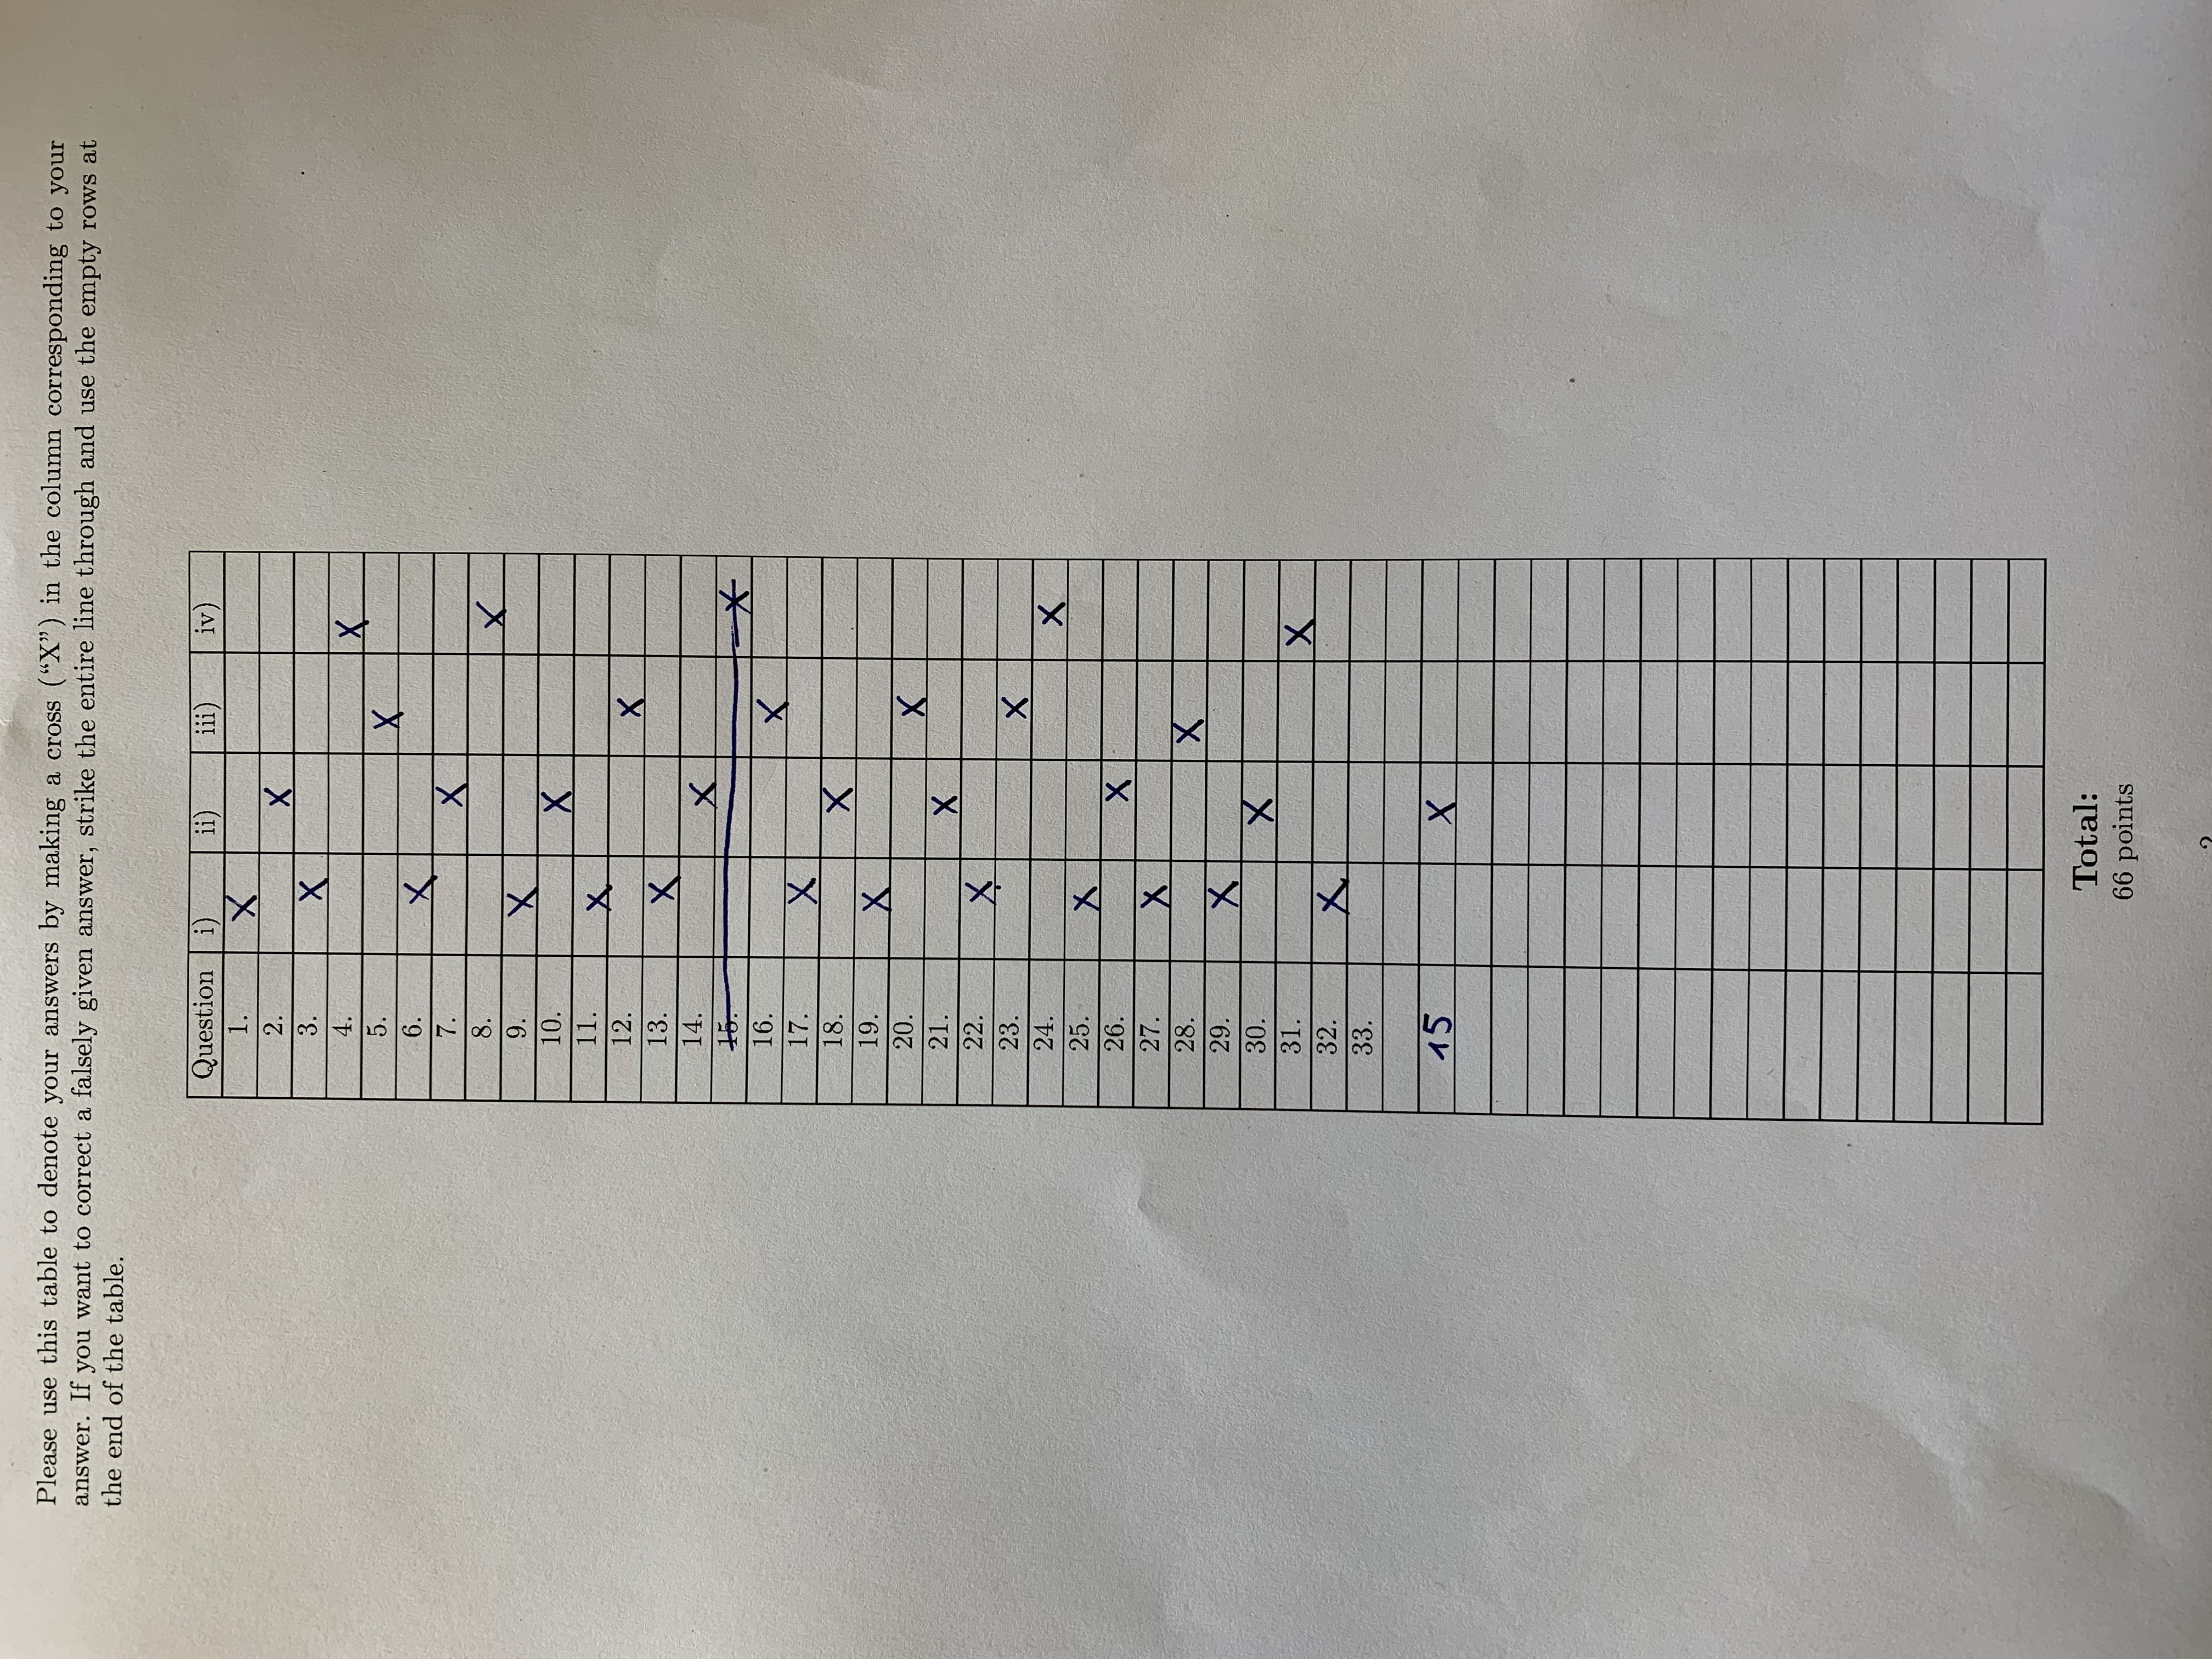 Please use this table to denote your answers by making a cross (“X”) in the column corresponding to your
answer. If you want to correct a falsely given answer, strike the entire line through and use the empty rows at
the end of the table.
Question i) ii) iii) iv)
1. X
2. X
3. X
4. X
5. X
6. X
7. X
8. X
9. X
10. X
11. X
12. X
13. X
14. X
15. X
16. X
17. X
18. X
19. X
20. X
21. X
22. X
23. X
24. X
25. X
26. X
27. X
28. X
29. X
30. X
31. X
32. X
33.
15 X
Total:
66 points